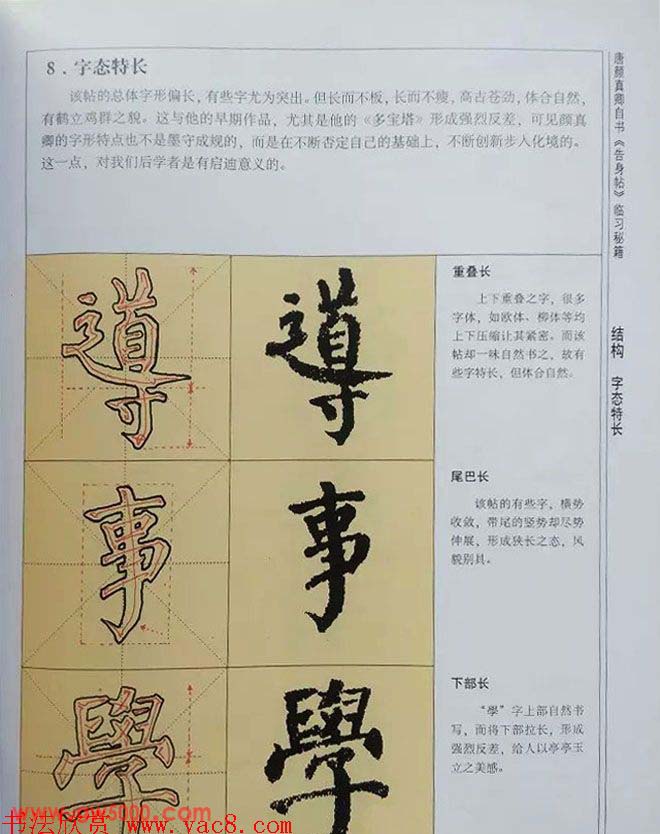 8．字态特长
该帖的总体字形偏长，有些字尤为突出。但长而不板，长而不瘦，高古苍劲，体合自然，
有鹤立鸡群之貌。这与他的早期作品，尤其是他的《多宝塔》形成强烈反差，可见颜真
卿的字形特点也不是墨守成规的，而是在不断否定自己的基础上，不断创新步入化境的。
这一点，对我们后学者是有启迪意义的。
導
導
重叠长
上下重叠之字，很多
字体，如欧体、柳体等均
上下压缩让其紧密。而该
帖却一味自然书之，故有
些字特长，但体合自然。
事
事
尾巴长
该帖的有些字，横势
收敛，带尾的竖势却尽势
伸展，形成狭长之态，风
貌别具。
學
學
下部长
“學”字上部自然书
写，而将下部拉长，形成
强烈反差，给人以亭亭玉
立之美感。
唐颜真卿自书《告身帖》临习秘籍
结构 字态特长
书法欣赏 www.yac8.com